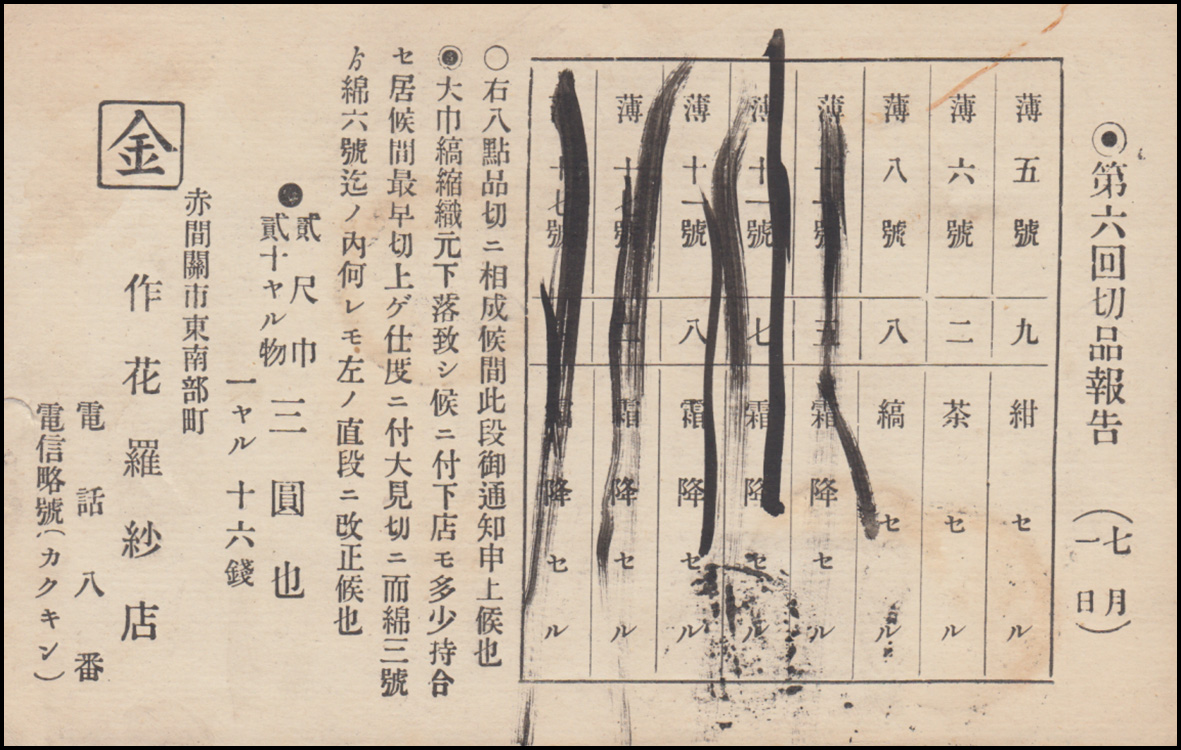 ◉第六回切品報告（七月一日）
薄五號 九 紺 セル
薄六號 二 茶 セル
薄八號 八 縞 セル
薄十一號 五 霜降 セル
薄十一號 七 霜降 セル
薄十一號 八 霜降 セル
薄十七號 二 霜降 セル
薄十七號 霜降 セル
○右八點品切ニ相成候間此段御通知申上候也
◉大巾縞縮織元下落致シ候ニ付下店モ多少持合
セ居候間最早切上ゲ仕度ニ付大見切ニ而綿三號
ゟ綿六號迄ノ內何レモ左ノ直段ニ改正候也
貳尺巾
貳十ヤル物 三圓也
一ヤル 十六錢
赤間關市東南部町
金
作花羅紗店
電話八番
電信略號（カクキン）